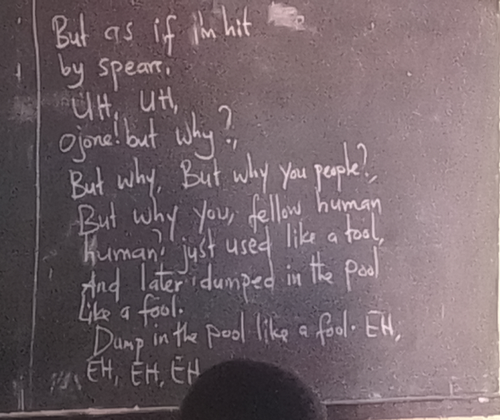 But as if I'm hit
by spears,
UH, UH,
Ojone! but why?,
But why, But why you people?,
But why you, fellow human
human, just used like a tool,
And later dumped in the pool
Like a fool.
Dump in the pool like a fool. EH,
EH, EH, EH